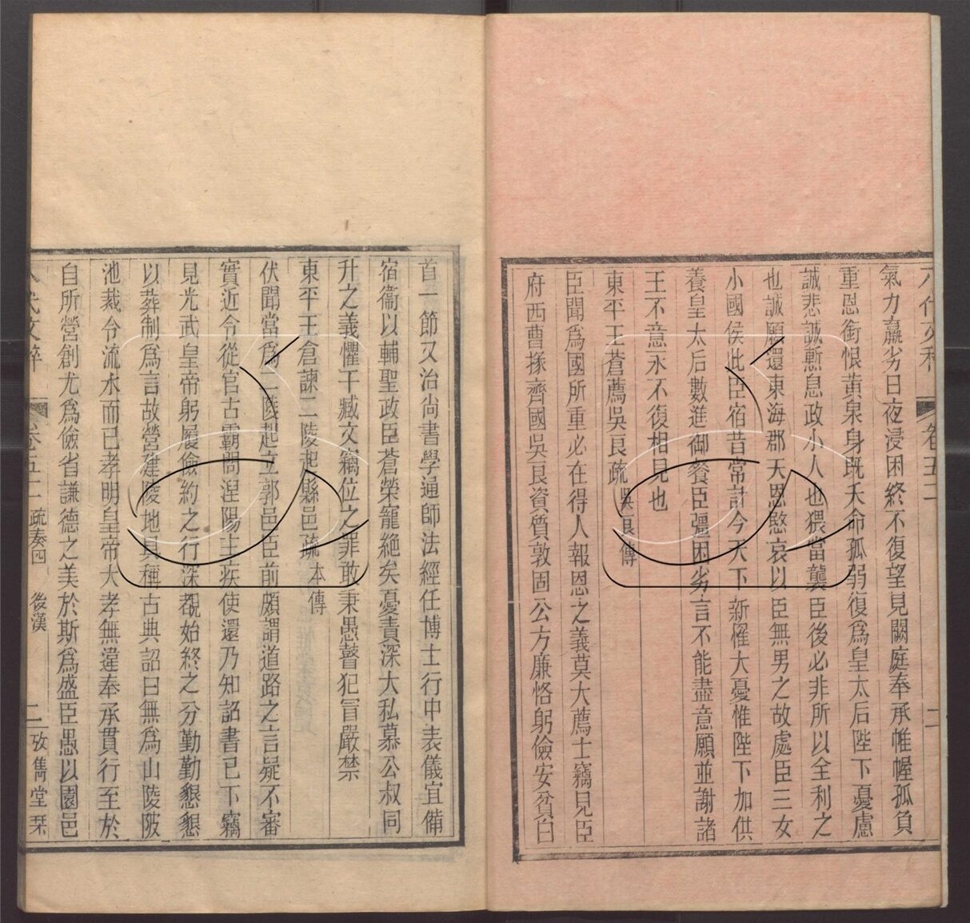 八代文粹 卷五二 二
氣力羸劣日夜浸困終不復望見闕庭奉承帷幄孤負
重恩銜恨黃泉身既夭命孤弱復爲皇太后陛下憂慮
誠悲誠慙息政小人也猥當襲臣後必非所以全利之
也誠願還東海郡天恩愍哀以臣無男之故處臣三女
小國侯此臣宿昔常計今天下新罹大憂惟陛下加供
養皇太后數進御餐臣彊困劣言不能盡意願並謝諸
王不意永不復相見也
東平王蒼薦吳良疏 吳良傳
臣聞爲國所重必在得人報恩之義莫大薦士竊見臣
府西曹掾齊國吳良資質敦固公方廉恪躬儉安貧白
首一節又治尚書學通師法經任博士行中表儀宜備
宿衞以輔聖政臣蒼榮寵絶矣憂責深大私慕公叔同
升之義懼干臧文竊位之罪敢秉愚瞽犯冒嚴禁
東平王倉諫二陵起縣邑疏 本傳
伏聞當爲二陵起立郭邑臣前頗謂道路之言疑不審
實近令從官古霸問涅陽主疾使還乃知詔書已下竊
見光武皇帝躬履儉約之行深覩始終之分勤勤懇懇
以葬制爲言故營建陵地具稱古典詔曰無爲山陵陂
池裁令流水而已孝明皇帝大孝無違奉承貫行至於
自所營創尤爲儉省謙德之美於斯爲盛臣愚以園邑
八代文粹 卷五二 疏奏四 後漢 二 攷雋堂栞